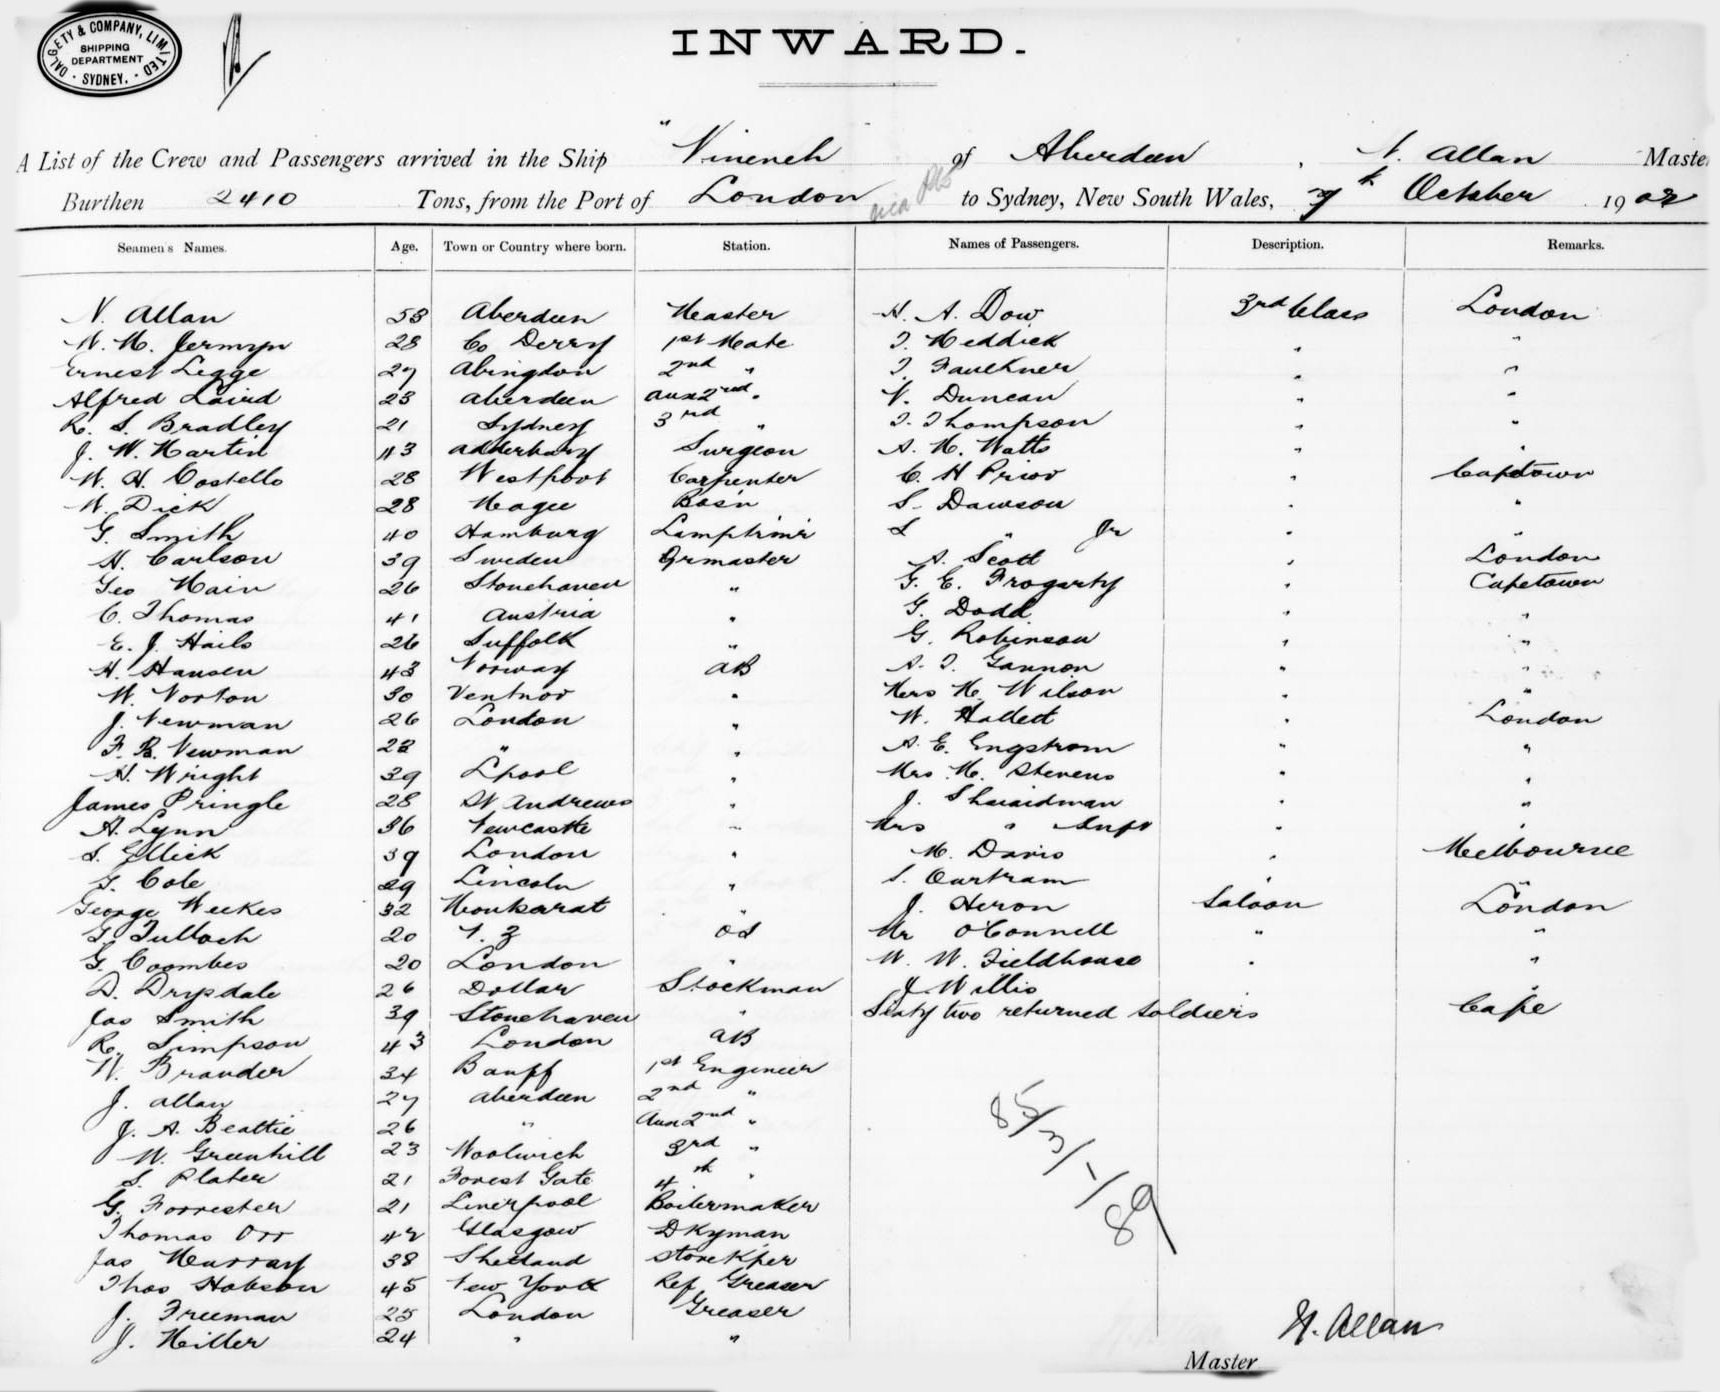 DALGETY & COMPANY, LIMITED
SHIPPING
DEPARTMENT
SYDNEY.
INWARD.
A List of the Crew and Passengers arrived in the Ship "Nineveh" of Aberdeen, N. Allan Master
Burthen 2410 Tons, from the Port of London via to Sydney, New South Wales, 7th October 1902
Seamens Names. Age. Town or Country where born. Station. Names of Passengers. Description. Remarks.
N. Allan 53 Aberdeen Master H. A. Dow 3rd Class London
W. M. Jermyn 28 Co Derry 1st Mate T. Meddick " "
Ernest Legge 27 Abingdon 2nd " T. Faulkner " "
Alfred Laird 23 Aberdeen Aux 2nd " N. Duncan " "
R. S. Bradley 21 Sydney 3rd " T. Thompson " "
J. W. Martin 43 Adderbury Surgeon A. M. Watts " "
W. H. Costello 28 Westport Carpenter C. H Prior " Capetown
W. Dick 28 Magee Bos'n S. Dawson " "
G. Smith 40 Hamburg Lamptrimr S " Jr " "
H. Carlson 39 Sweden Qrmaster A. Scott " London
Geo Main 26 Stonehaven " G. E. Frogarty " Capetown
C. Thomas 41 Austria " G. Dodd " "
E. J. Hails 26 Suffolk " G. Robinson " "
H. Hansen 43 Norway AB A. T. Gannon " "
W. Norton 30 Ventnor " Mrs M. Wilson " "
J. Newman 26 London " W. Hallett " London
F. R. Newman 23 " " A. E. Engstrom " "
H. Wright 39 Lpool " Mrs M. Stevens " "
James Pringle 28 St Andrews " J. " "
A. Lynn 36 Newcastle " Mrs " & Inft " "
S. Gllick 39 London " M. Davis " Melbourne
G. Cole 29 Lincoln " S. Ourtram " "
George Weekes 32 Montserat " J. Heron Saloon London
G. Tulloch 20 N. Z OS Mr O'Connell " "
G. Coombes 20 London " W. W. Fieldhouse " "
D. Drysdale 26 Dollar Stockman J. Willis " "
Jas Smith 39 Stonehaven " Sixty two returned Soldiers Cape
R. Simpson 43 London AB
W. Brander 34 Banff 1st Engineer
J. Allan 27 Aberdeen 2nd "
J. A. Beattie 26 " Aux 2nd "
W. Greenhill 23 Woolwich 3rd "
S. Plater 21 Forest Gate 4th "
G. Forrester 21 Liverpool Boilermaker
Thomas Orr 42 Glasgow Dkyman
Jas Murray 38 Shetland StoreKper
Thos Hobson 45 New York Ref Greaser
J. Freeman 25 London Greaser
J. Miller 24 " "
85/3/1/89
N. Allan
Master